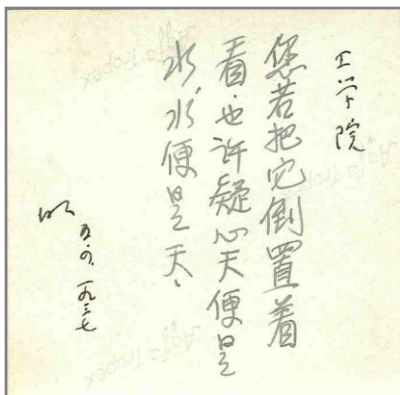 工学院
您若把它倒置着
看，也许疑心天便是
水，水便是天、
一九三七